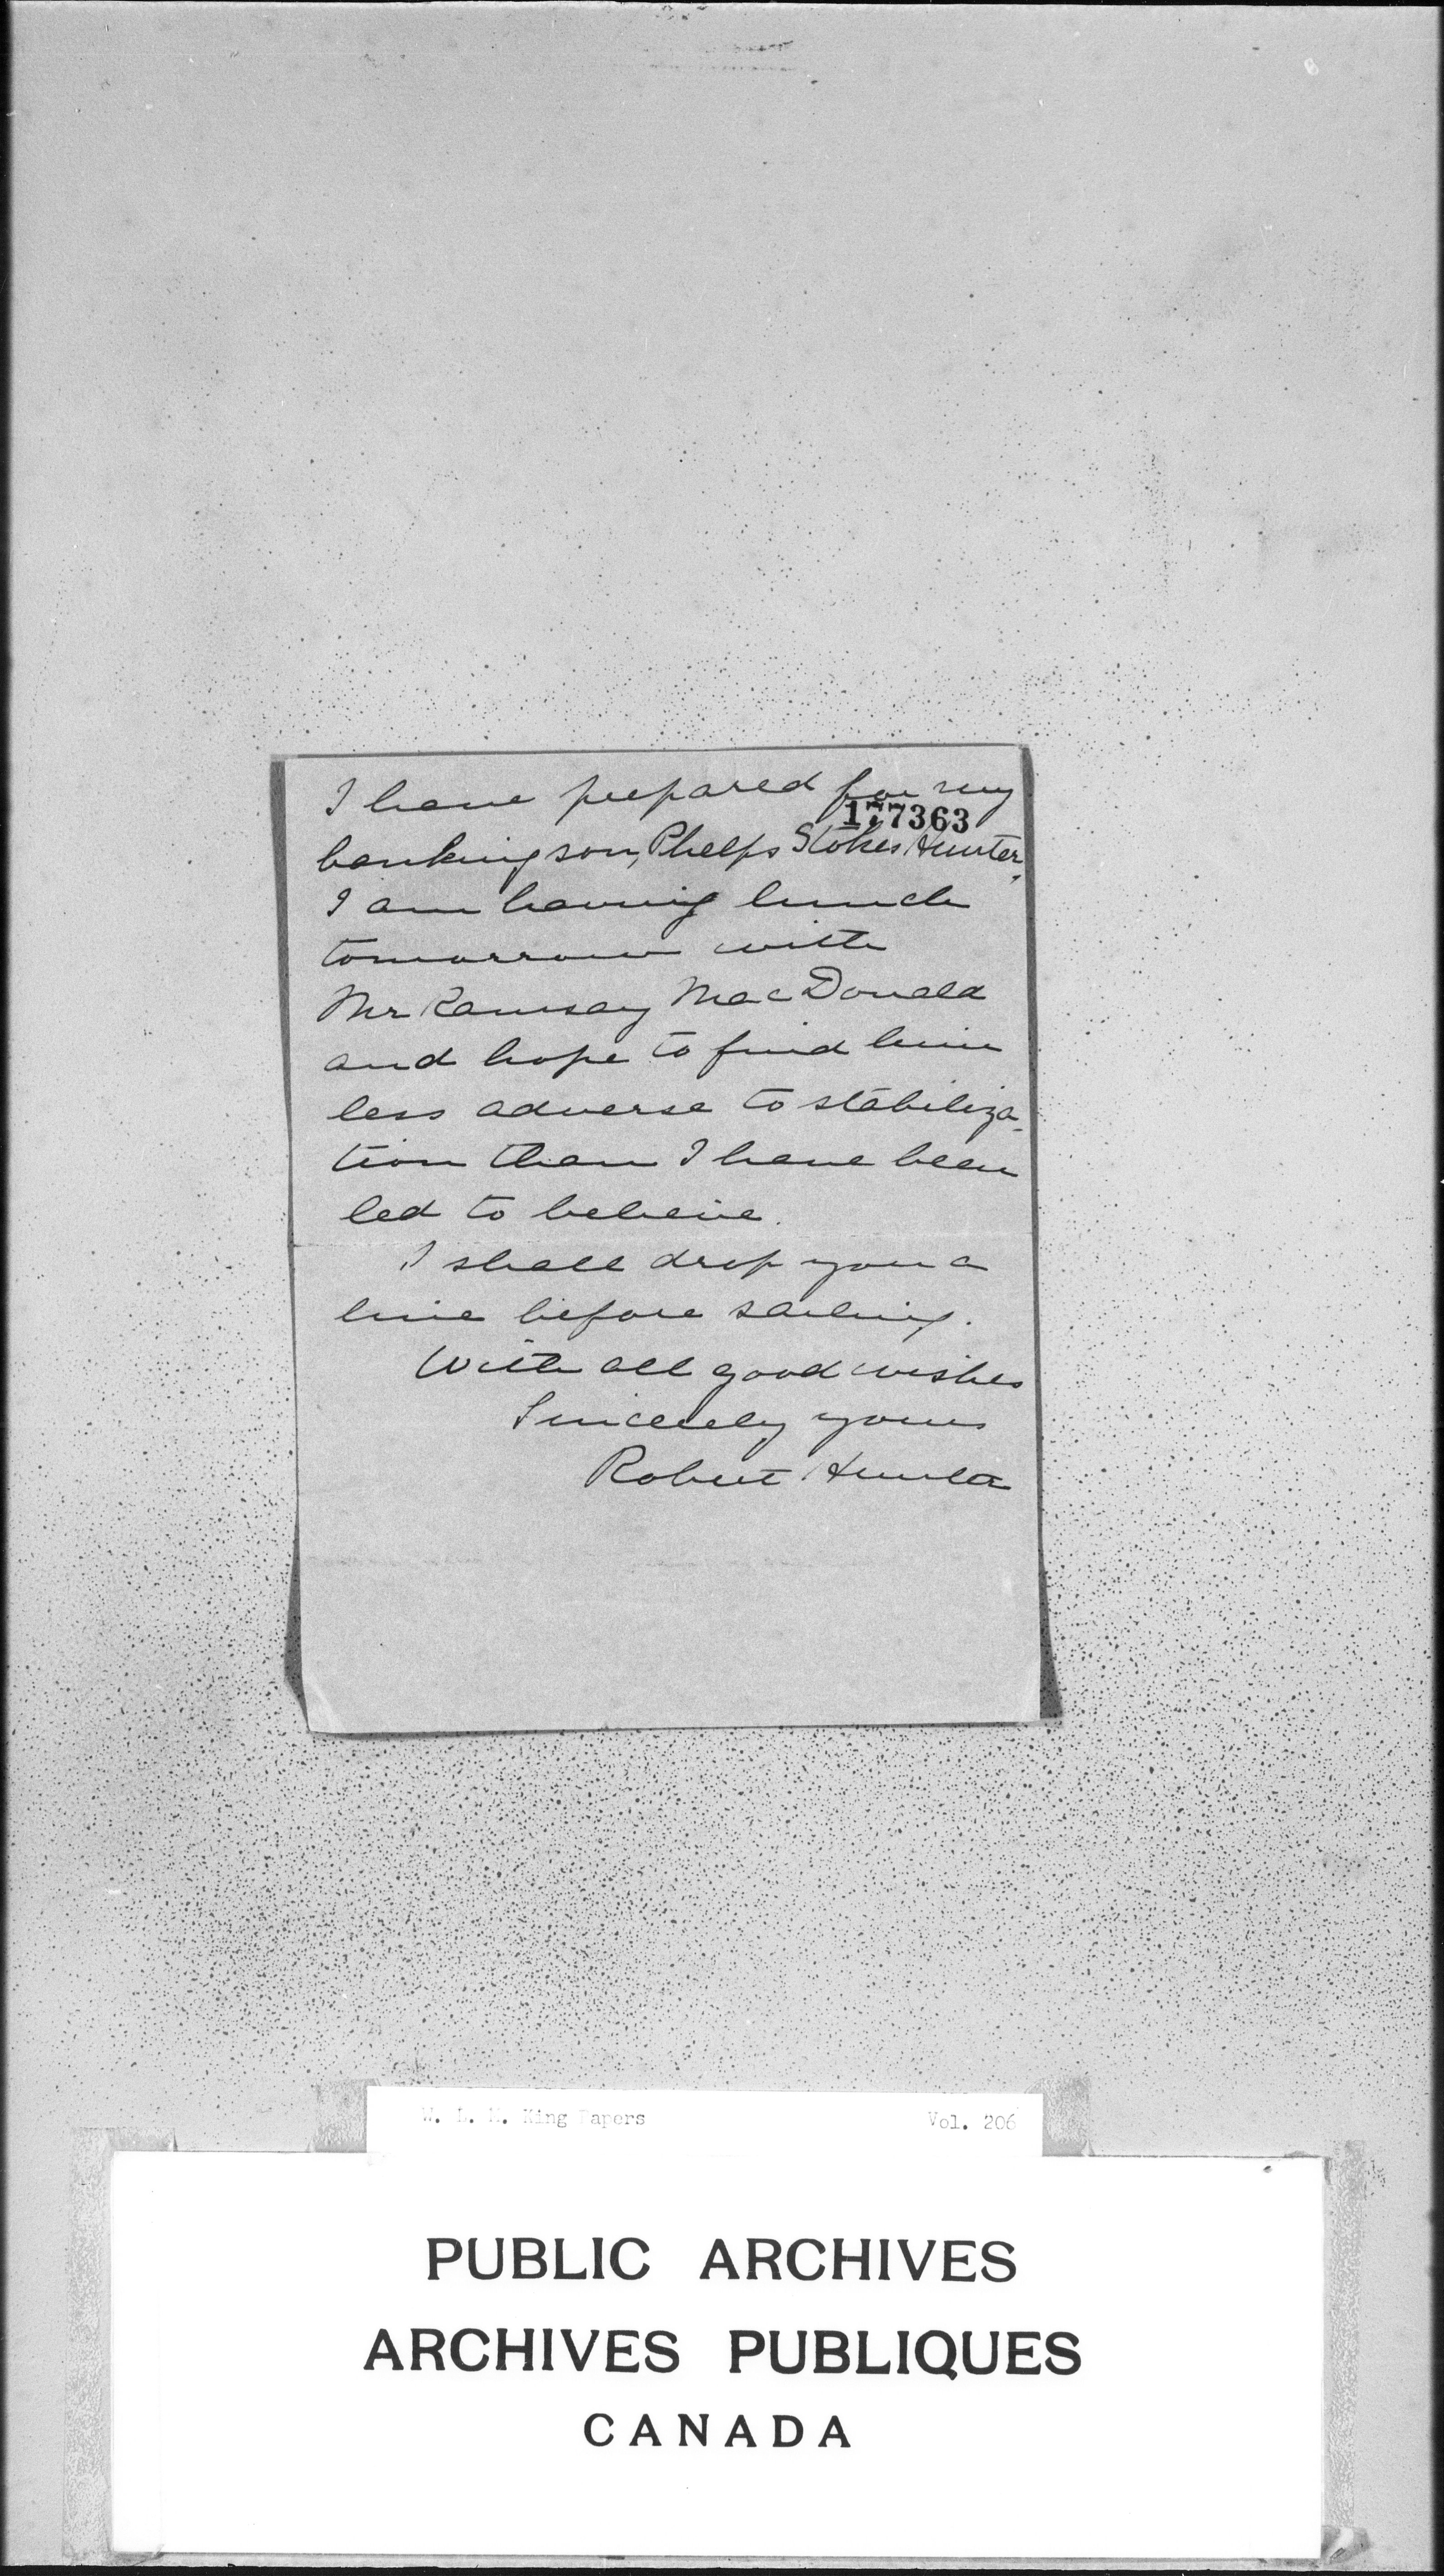 I have prepared for my
177363
banking son, Phelps Stokes Hunter.
I am having lunch
tomorrow with
Mr Ramsay MacDonald
and hope to find him
less adverse to stabiliza-
tion than I have been
led to believe.
I shall drop you a
line before sailing.
With all good wishes
Sincerely yours
Robert Hunter
W. L. M. King Papers Vol. 206
PUBLIC ARCHIVES
ARCHIVES PUBLIQUES
CANADA